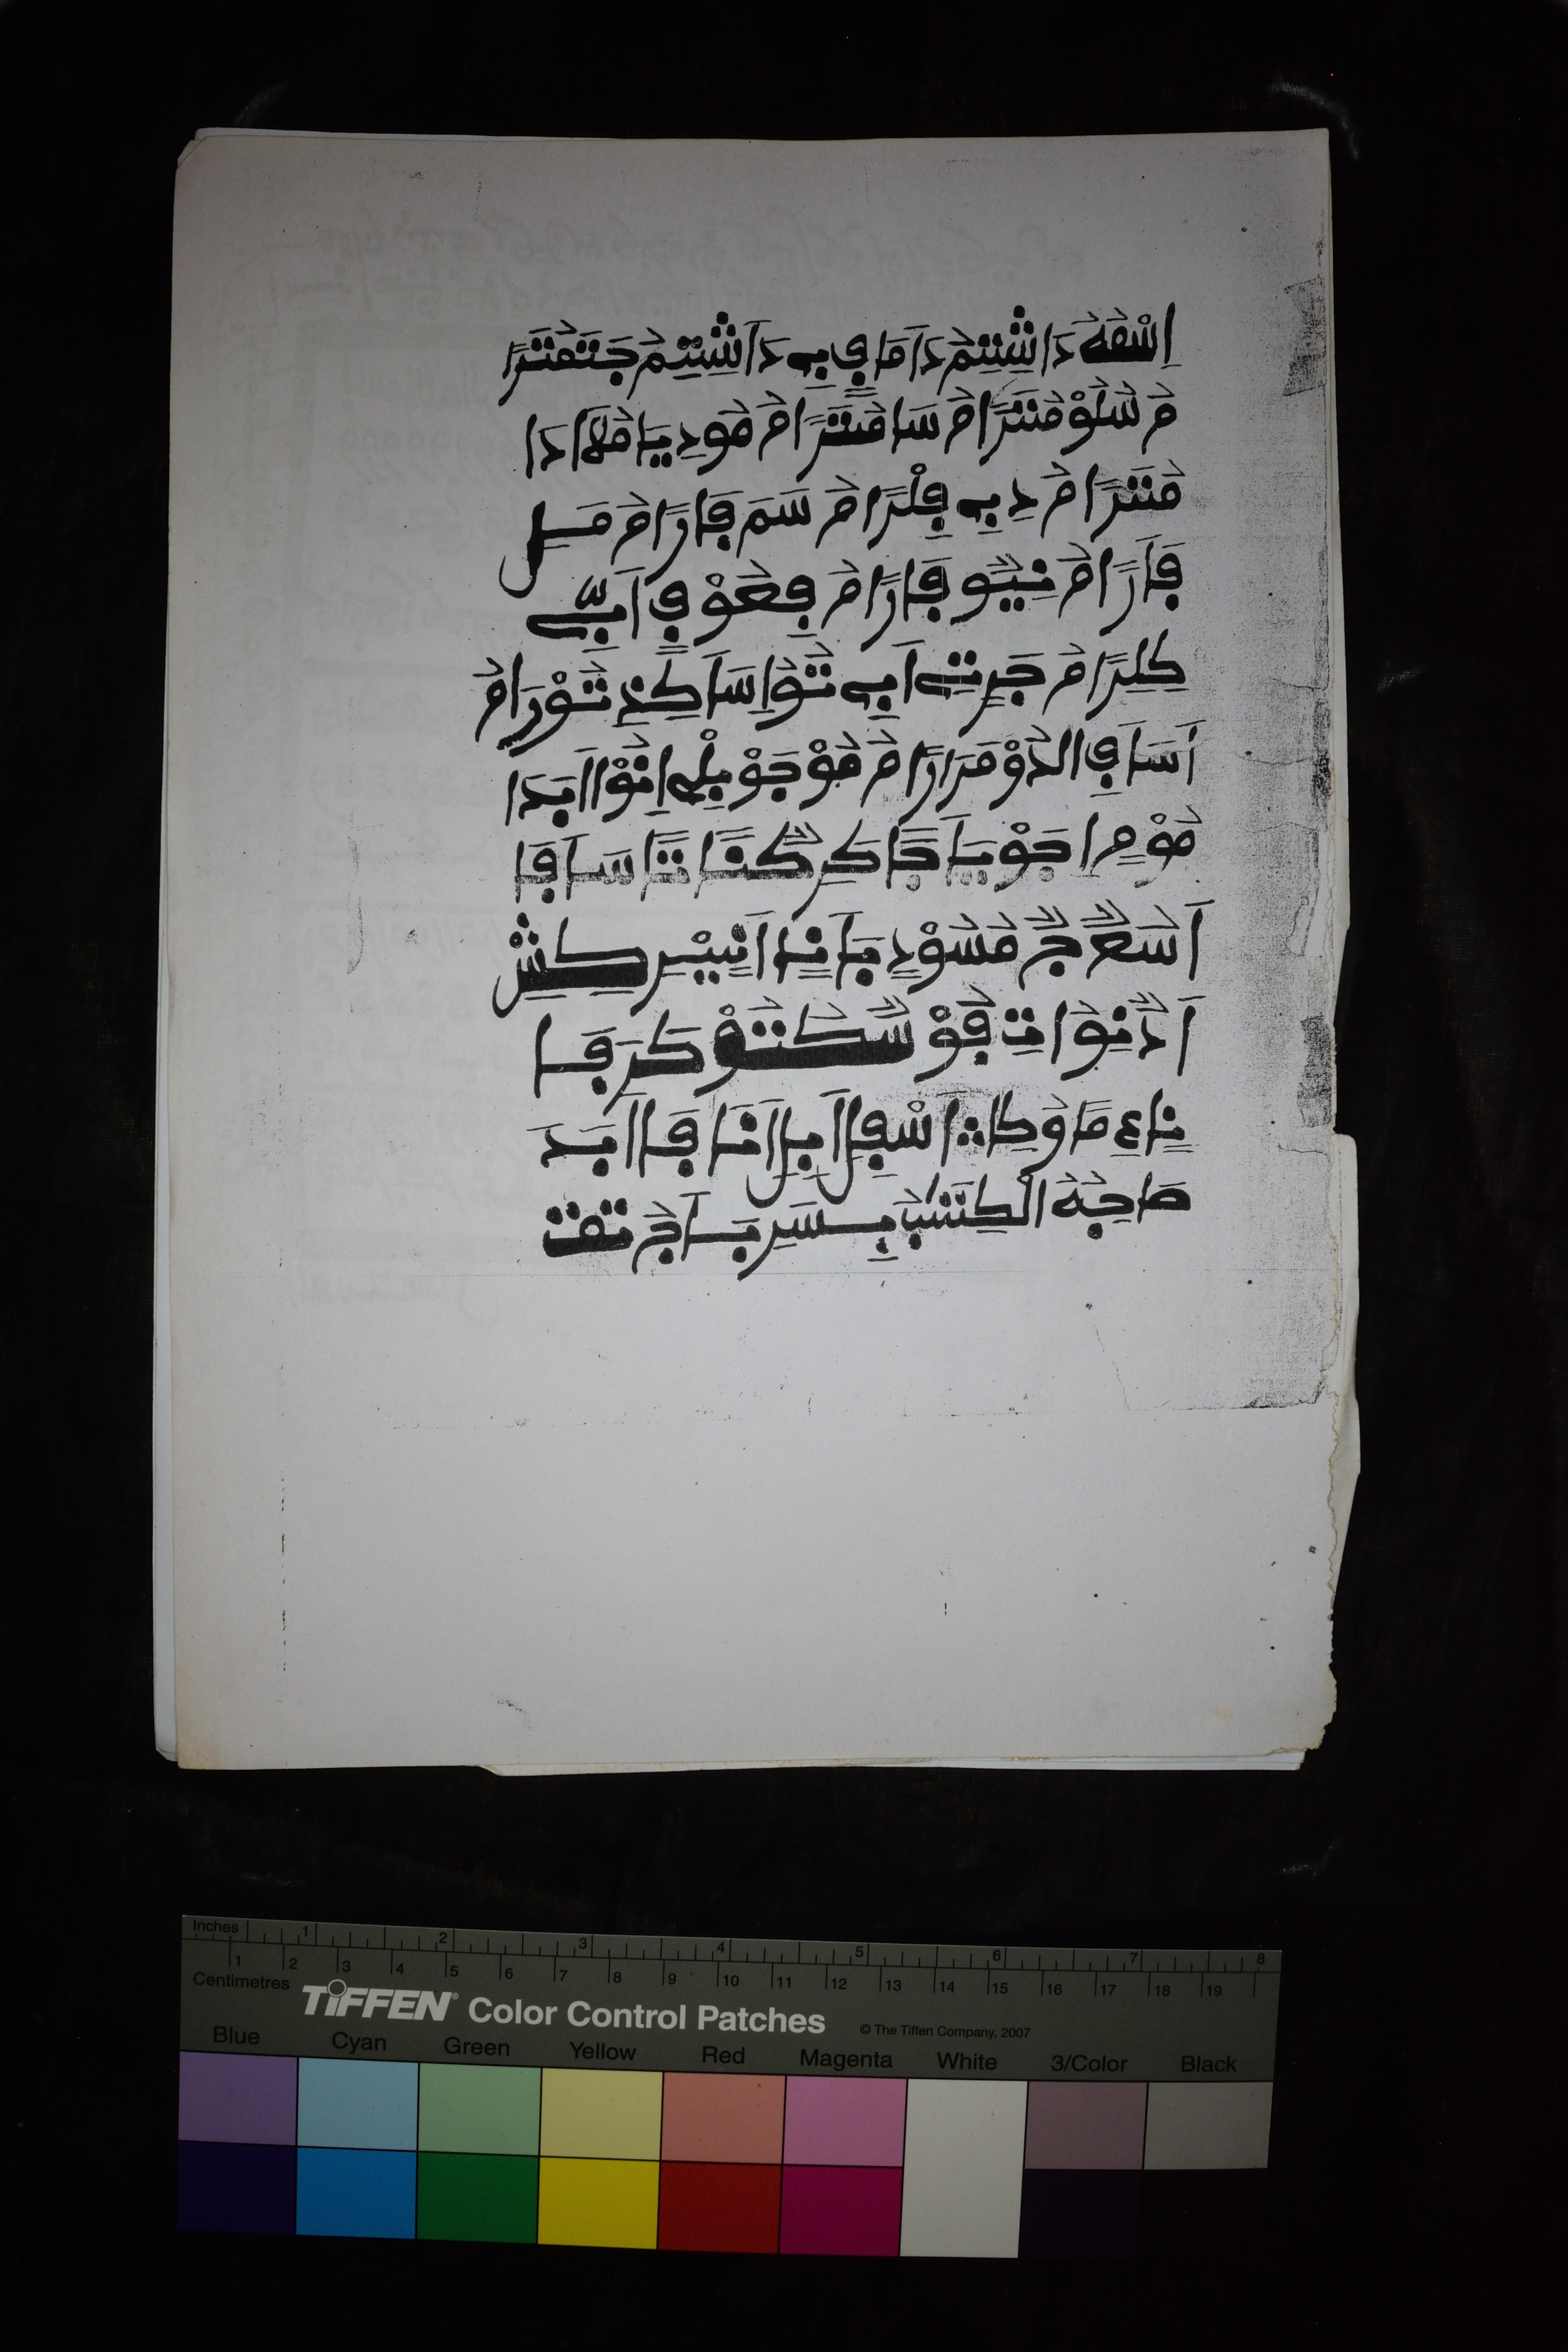 اِسْفُهُ دَا شِتِتِمُ دَاَ مَا فٍ بِ دَاَ شِتِتِمُ جَتَفَتَرًا
مُ سُلَوْ مُنتَرًا مُ سَا مُنتَرًا مُ مُودِ يَا مُلَااَ دَا
مُنتَرًا مُ دِبِ فِلْرًا مُ سَمَ فَارًا مُ مَسِلِ
فَاَرًا مُ نِيٌو فَارًا مُ فِعُوْ فٍ اَبِّ
كِلِرًا مُ جَرِتِ اَبِ تُوْاِسَاَ كِخِ تُوْرَا مُ
اَسَا فِ الدُوْ مَرَارًا مُ مُوْ جَوْ بِلْ اِنُوْ اابَدَا
مُوْ مِ ا جَوْ يَا جًا كَرِ كٌنًا تًا سَا فَا
اَسُعٌ جٌ مُسُوْدِ بَا نِا اَنِيْرِ كِشِْ
اَدٌنِوُاتِ فُوْ سُكتُوْ كَرَ فَا
نِا عِ مَا وَكَا ؞ اَسْفِلِ اَبِلِ اَنَا فَا اابَدَ
صَاحِبُهُ الْكِتَبُ بِسَرِ بَاَ جُ تفت
Inches 1 2 3 4 5 6 7 8
1 2 3 4 5 6 7 8 9 10 11 12 13 14 15 16 17 18 19
Centimetres
TIFFEN® Color Control Patches © The Tiffen Company, 2007
Blue Cyan Green Yellow Red Magenta White 3/Color Black